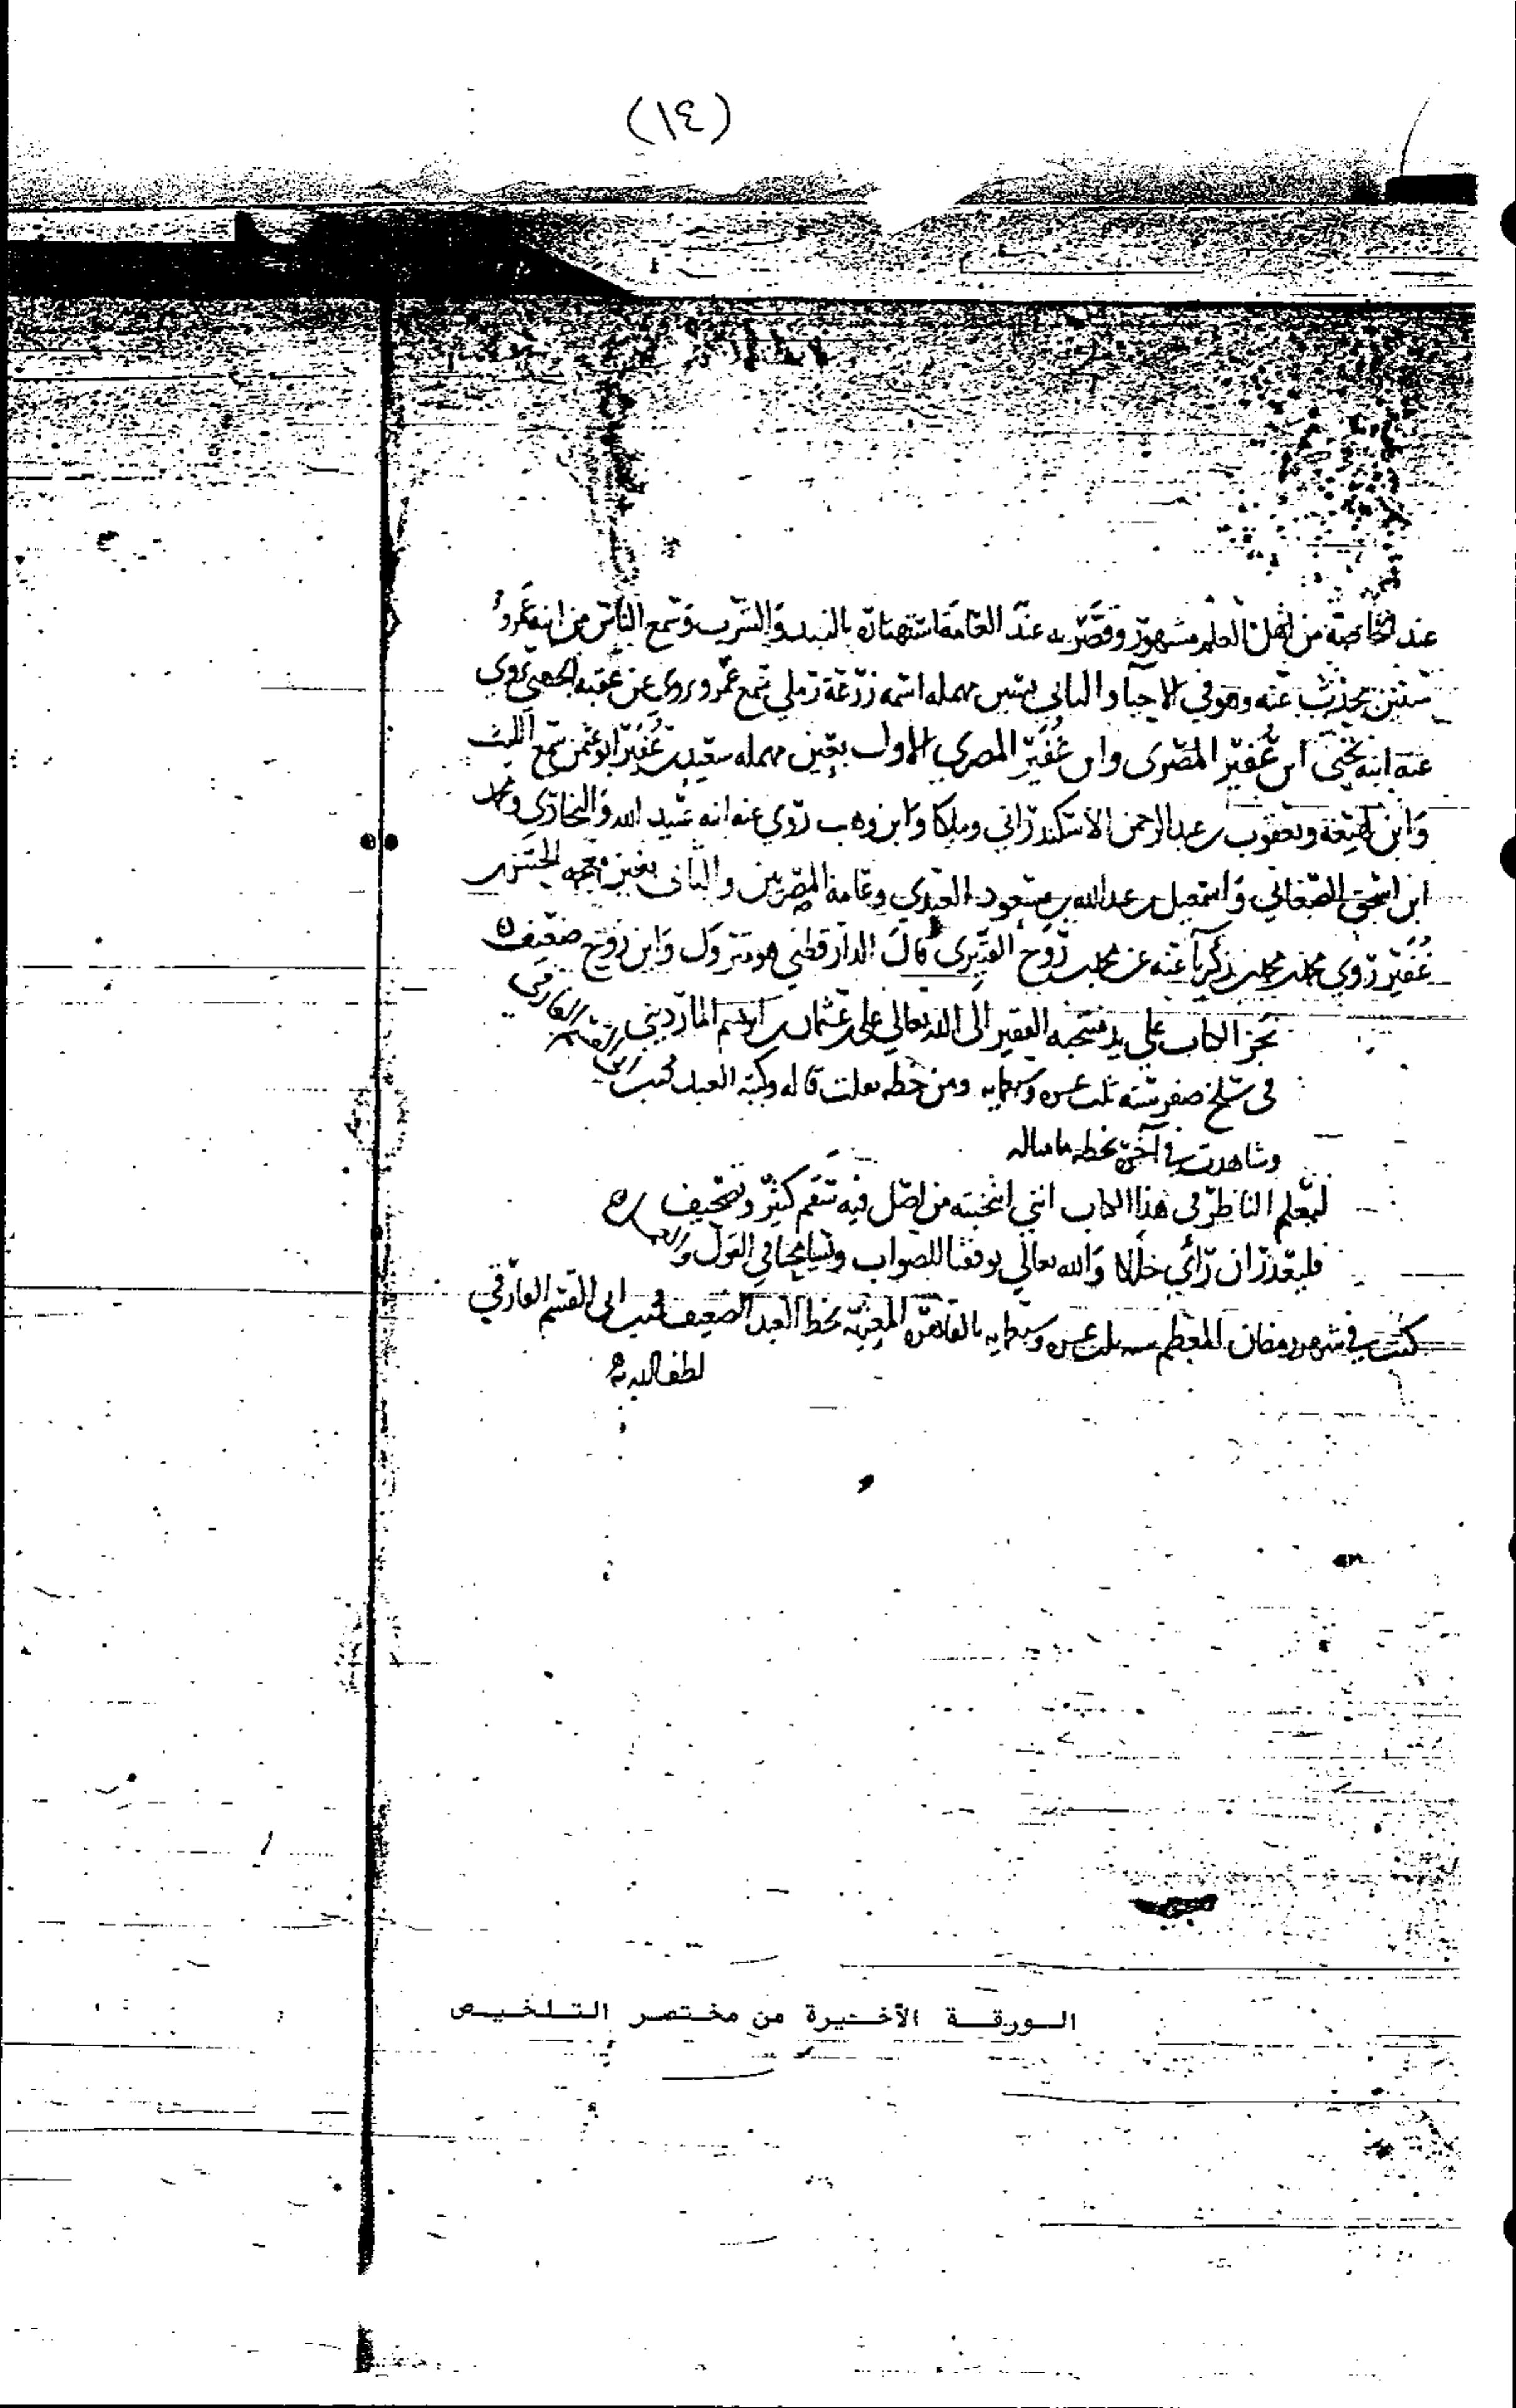 (١٤)
عند الخاصة من اهل العلم مشهور وقصر به عند العامة اشتهاره بالنبيذ والشرب وسمع الناس من ابنه عمرو
سنين يحدث عنه وهو في الاحيا والثاني بسين مهمله اسمه زرعة رملي سمع عمرو وروى عن عقبه روى
عنه ابنه يحيى ابن عُفَير المصرى وابن غُفَير المصري الاول بعين مهمله سعيد بن عُفَير ابو عثمن سمع الليث
وابن لهيعة ويعقوب بن عبد الرحمن الاسكندراني ومالكا وابن وهب روى عنه ابنه عبيد الله والبخاري ومحمد
ابن اسحق الصغاني واسمعيل بن عبد الله بن مسعود العبدي وعامة المصريين والثاني بغين معجمه الحسن بن
غُفَير روى محمد بن محمد بن زكريا عنه عن محمد بن روح القتيرى قال الدارقطني هو متروك وابن روح ضعيف ه
نجز الكتاب على يد منتخبه الفقير الى الله تعالى علي بن عثمان بن ابرهيم المارديني
في سلخ صفر سنة ثلث عشره وسبعمايه ومن خطه نقلت قاله وكتبه العبد محمد بن ابي القسم الفارقي
وشاهدت في آخره بخطه ما مثاله
ليعلم الناظر في هذا الكتاب انني انتخبته من اصل فيه سقم كثير وتصحيف
فليعذر ان رأى خللا والله تعالى يوفقنا للصواب ويسامحنا في القول والعمل ه
كتب في شهر رمضان المعظم سنه ثلث عشره وسبعمايه بالقاهرة المعزية بخط العبد الضعيف محمد بن ابي القسم الفارقي
لطف الله به
الورقة الأخيرة من مختصر التلخيص